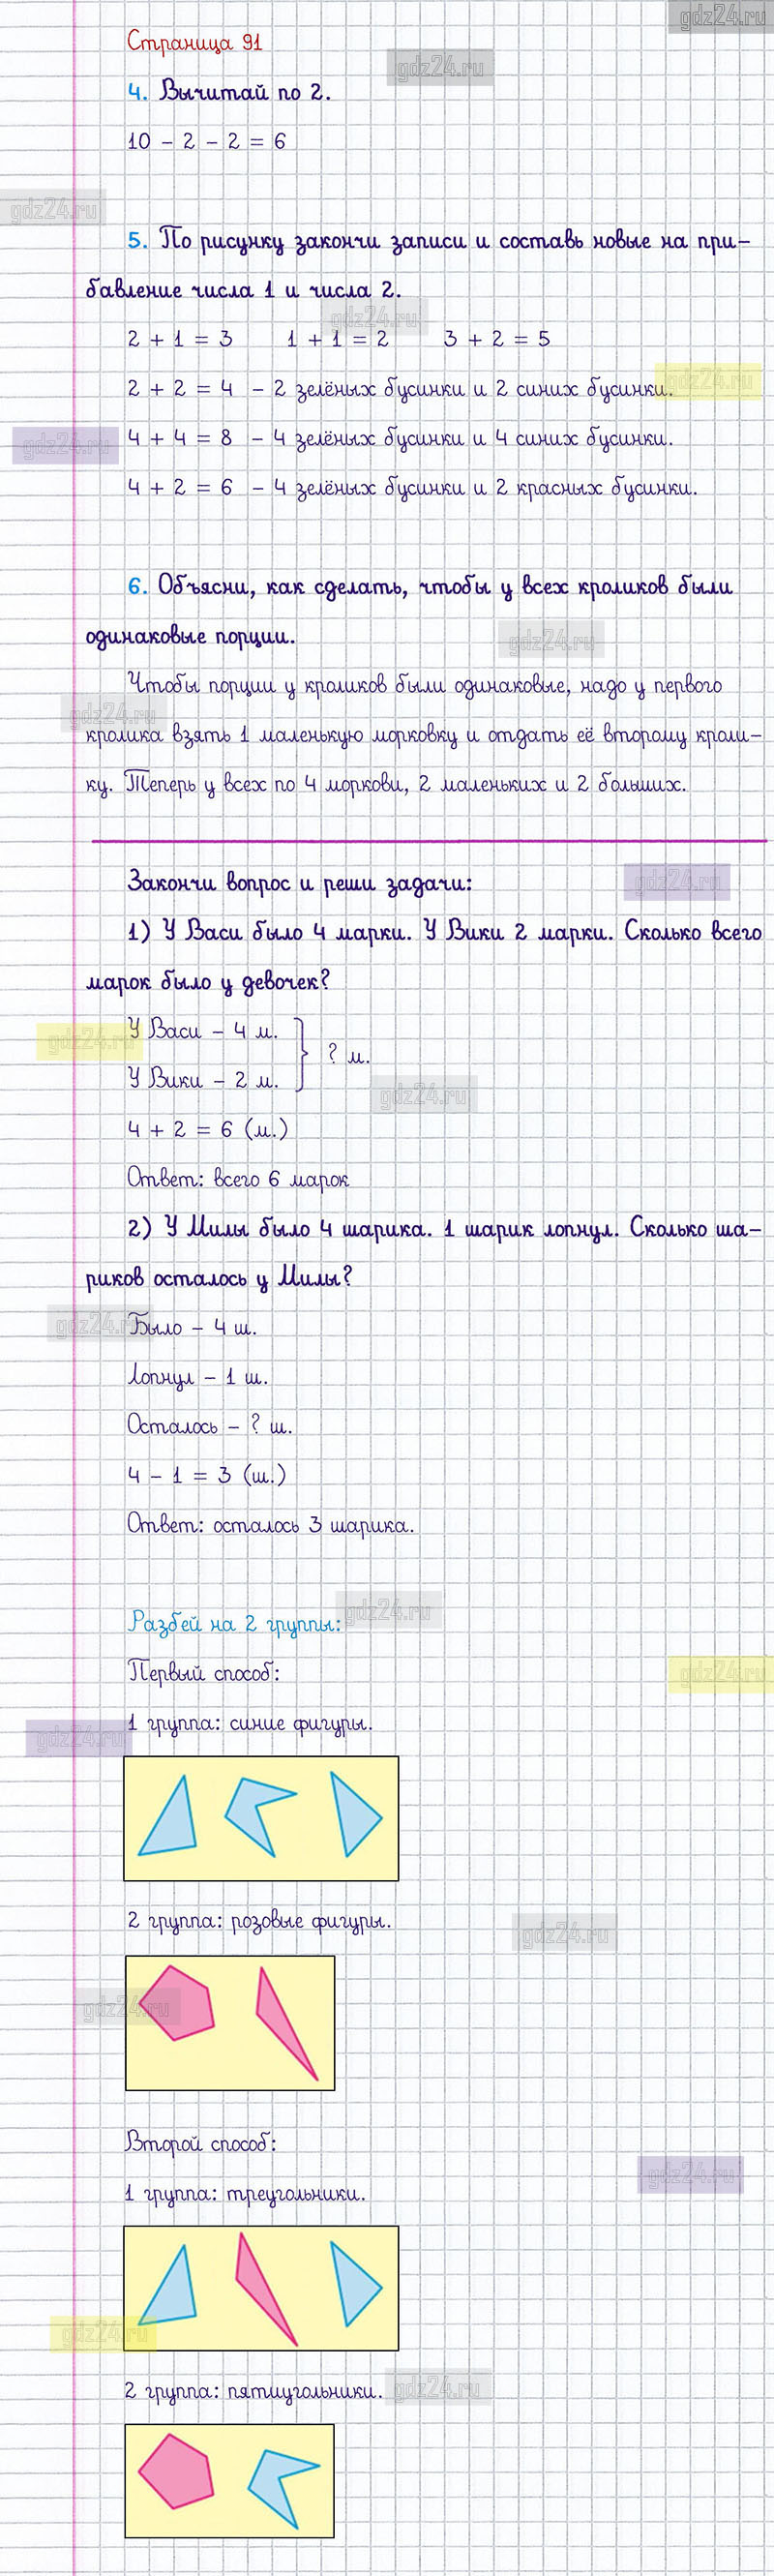 gdz24.ru
Страница 91
gdz24.ru
4. Вычитай по 2.
10 - 2 - 2 = 6
gdz24.ru
5. По рисунку закончи записи и составь новые на при-
бавление числа 1 и числа 2.
gdz24.ru
2 + 1 = 3 1 + 1 = 2 3 + 2 = 5
gdz24.ru
2 + 2 = 4 - 2 зелёных бусинки и 2 синих бусинки.
gdz24.ru
4 + 4 = 8 - 4 зелёных бусинки и 4 синих бусинки.
4 + 2 = 6 - 4 зелёных бусинки и 2 красных бусинки.
6. Объясни, как сделать, чтобы у всех кроликов были
одинаковые порции.
gdz24.ru
Чтобы порции у кроликов были одинаковые, надо у первого
gdz24.ru
кролика взять 1 маленькую морковку и отдать её второму кроли-
ку. Теперь у всех по 4 моркови, 2 маленьких и 2 больших.
Закончи вопрос и реши задачи:
gdz24.ru
1) У Васи было 4 марки. У Вики 2 марки. Сколько всего
марок было у девочек?
У Васи - 4 м.
gdz24.ru
? м.
У Вики - 2 м.
gdz24.ru
4 + 2 = 6 (м.)
Ответ: всего 6 марок
2) У Милы было 4 шарика. 1 шарик лопнул. Сколько ша-
риков осталось у Милы?
gdz24.ru
Было - 4 ш.
Лопнул - 1 ш.
Осталось - ? ш.
4 - 1 = 3 (ш.)
Ответ: осталось 3 шарика.
gdz24.ru
Разбей на 2 группы:
Первый способ:
gdz24.ru
1 группа: синие фигуры.
gdz24.ru
2 группа: розовые фигуры.
gdz24.ru
gdz24.ru
Второй способ:
gdz24.ru
1 группа: треугольники.
gdz24.ru
2 группа: пятиугольники.
gdz24.ru